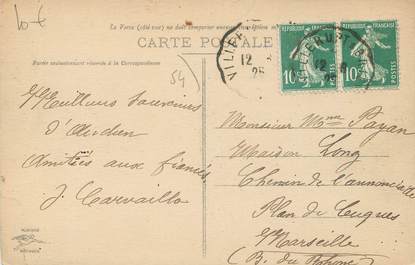 10 €
Le Verso (côté vue) ne doit comporter aucune
CARTE POSTALE
Partie exclusivement réservée à la Correspondance
54
VILLERUPT
12 8
25
VILLERUPT
12 8
25
10c
FRANÇAISE
POSTES
10c
FRANÇAISE
POSTES
Meilleurs souvenirs
d'
Amitiés aux fiancés
J. Carvaillo
Monsieur Mme Payan
Maison Long
Chemin de l'annonciade
Plan de Cuques
s/Marseille
(B. du Rhône)